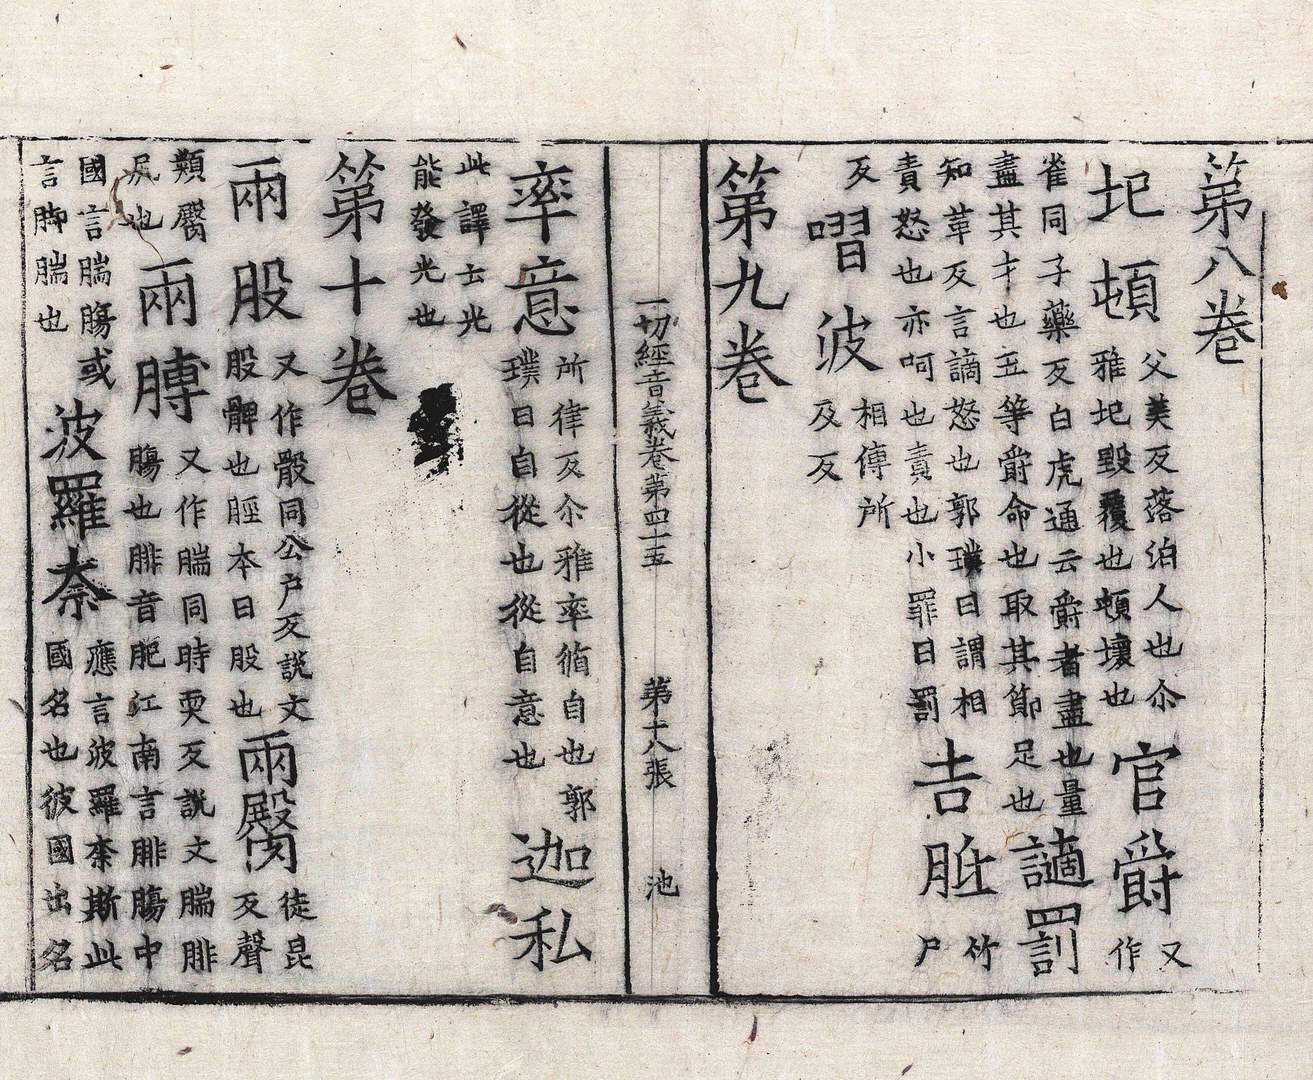 第八卷
圮頓父美反落泊人也尒
雅圮毀覆也頓壞也
官爵又
作
雀同子藥反白虎通云爵者盡也量
盡其才也五等爵命也取其節足也
讁罰
知革反言讁怒也郭璞曰謂相
責怒也亦呵也責也小罪曰罰
吉胝竹
尸
反㗩波相傳所
及反
第九卷
一切經音義卷第四十五 第十八張 池
率意所律反尒雅率循自也郭
璞曰自從也從自意也
迦私
此譯云光
能發光也
第十卷
兩股又作骰同公戶反說文
股髀也脛本曰股也
兩臋徒昆
反聲
類臋
尻也
兩膞又作腨同時耎反說文腨腓
腸也腓音肥江南言腓腸中
國言腨腸或
言脚腨也
波羅奈應言波羅奈斯此
國名也彼國出名